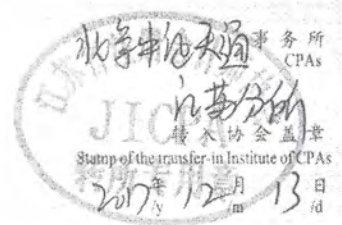 北京中纪天通 事务所
CPAs
江苏分所
JICPA
转入协会盖章
Stamp of the transfer-in Institute of CPAs
2017年 12月 13日
/y /m /d